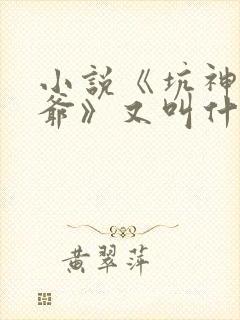 小说《坑神
爺》又叫什
黄翠萍